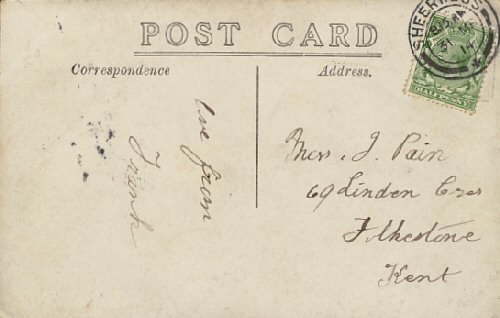 POST CARD
Correspondence
Address.
SHEERNESS
HALFPENNY
love from
Frank
Mrs. J. Pain
69 Linden Cres
Folkestone
Kent